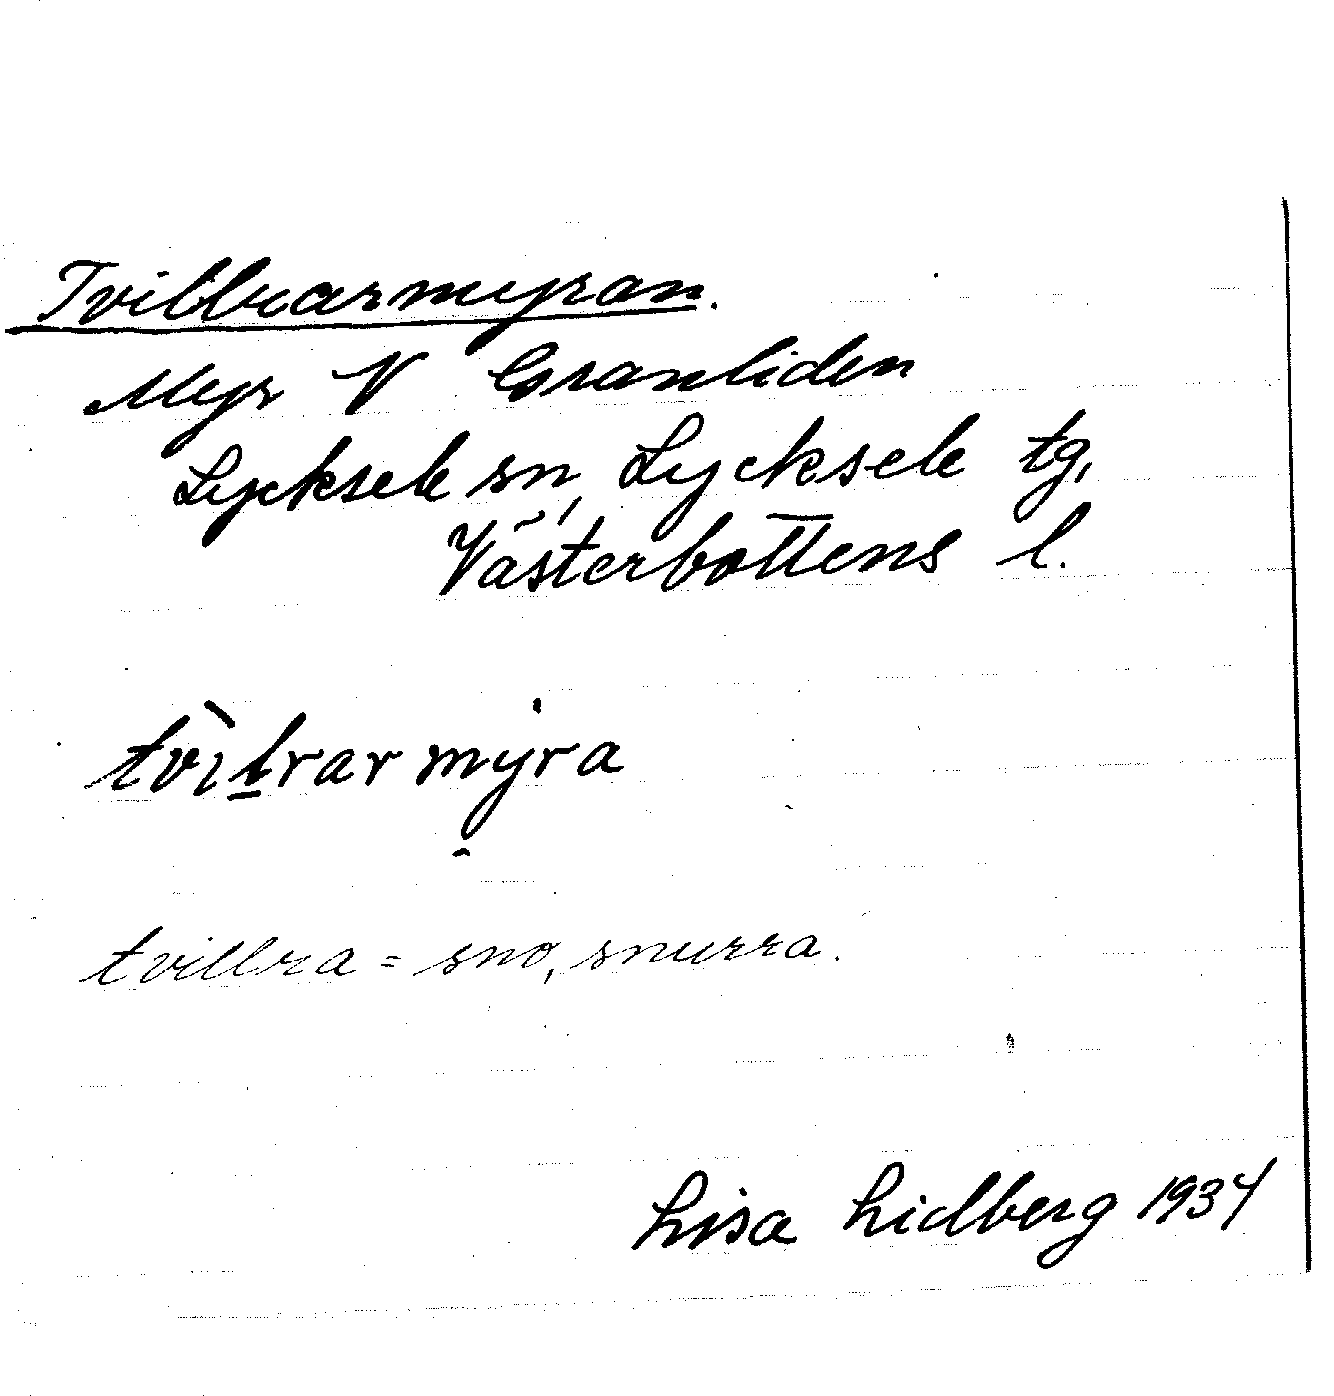 Tvillrarmyran.
Myr V Granliden
Lycksele sn, Lycksele tg,
Västerbottens l.
tvìl̲rarmyra
tvillra = sno, snurra.
Lisa Lidberg 1934